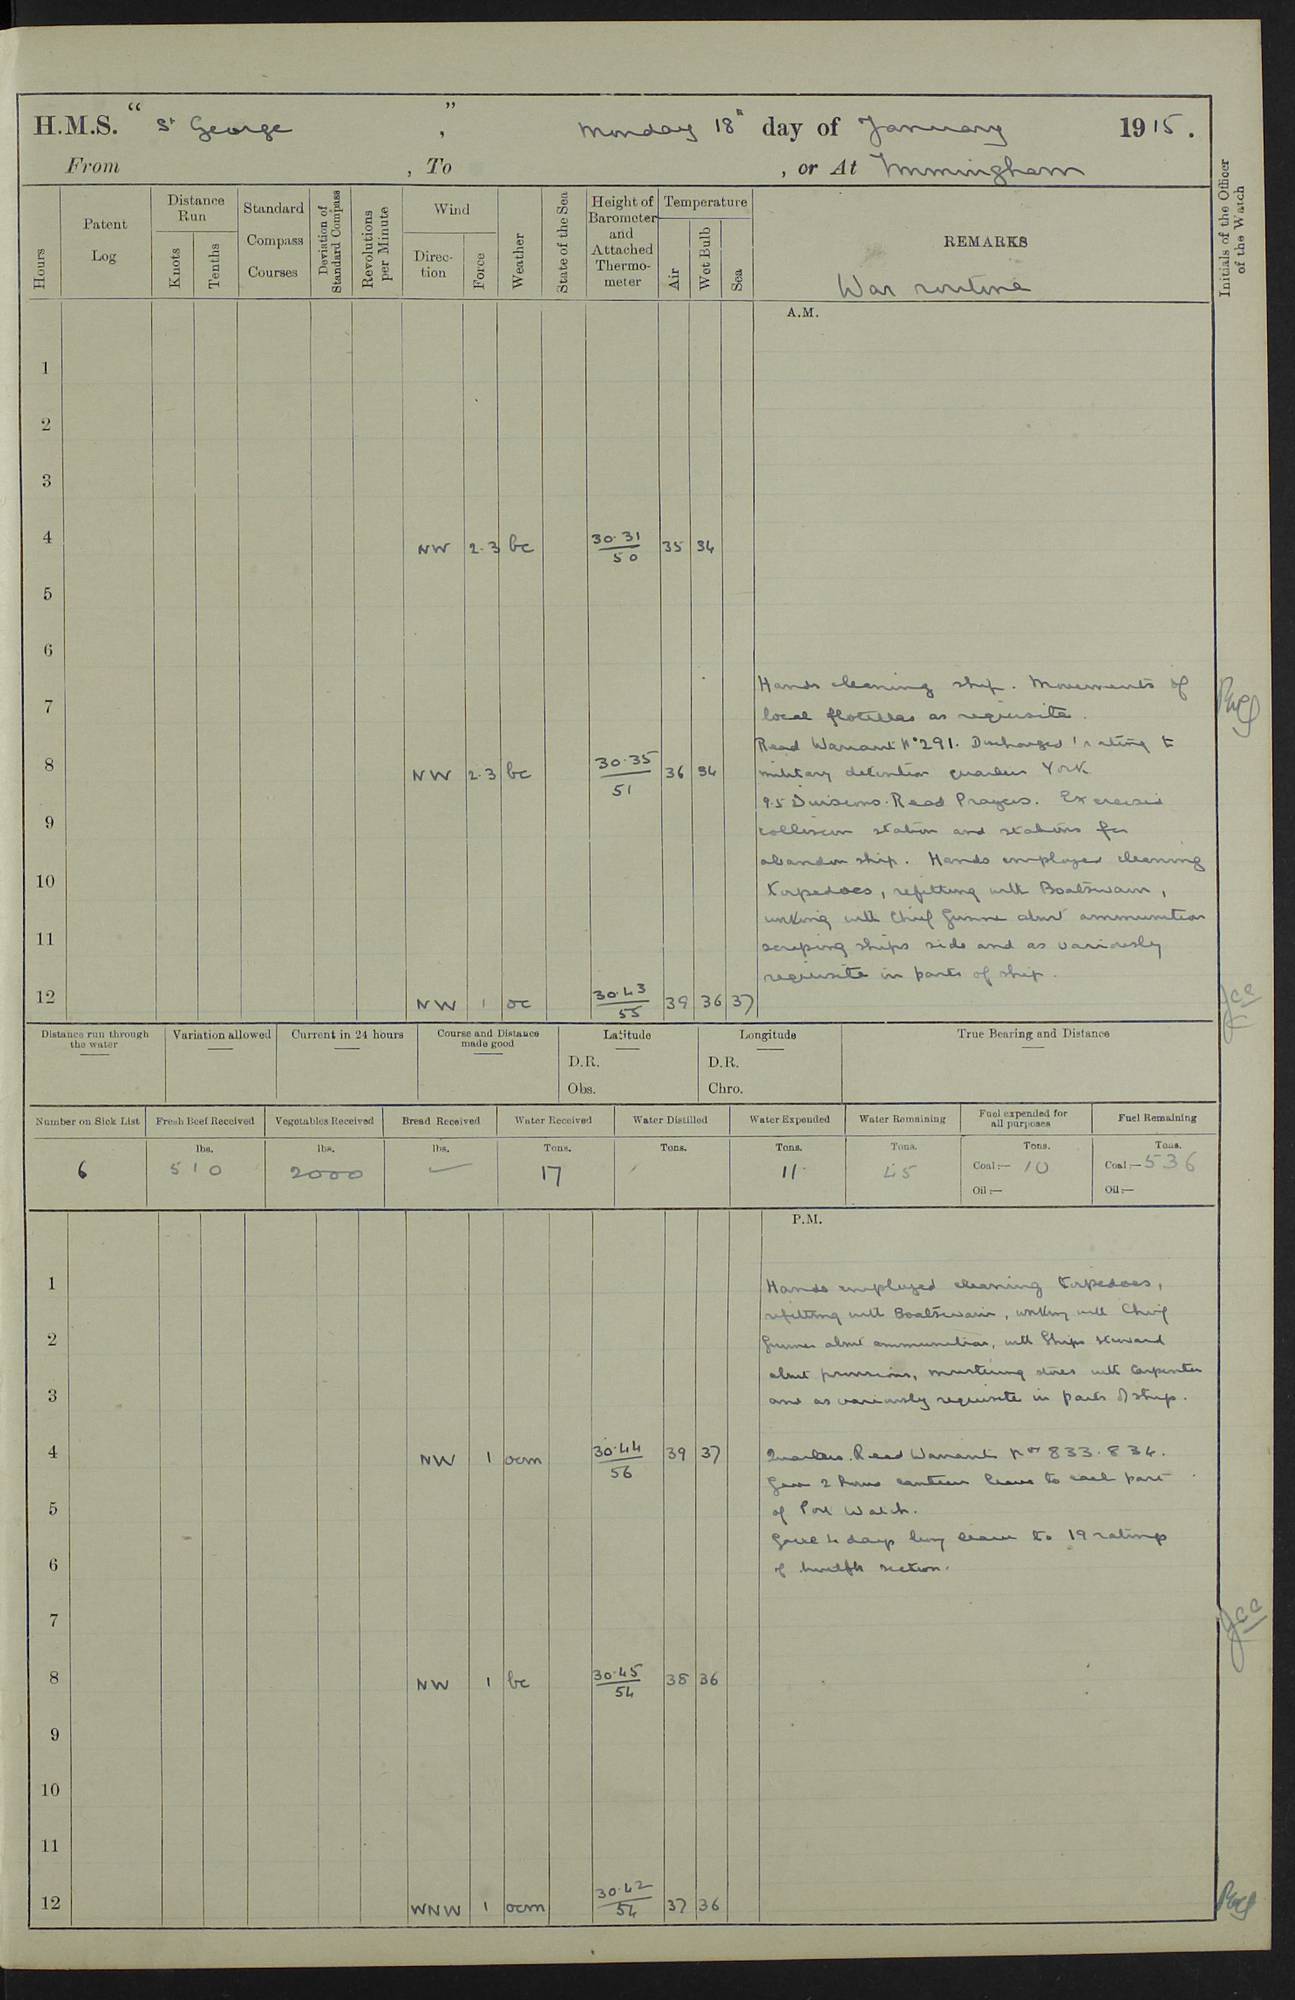 H.M.S. "St George", Monday 18th day of January 1915.
From , To , or At Immingham
Hours
Patent Log
Distance Run
Knots
Tenths
Standard Compass Courses
Deviation of Standard Compass
Revolutions per Minute
Wind
Direc-tion
Force
Weather
State of the Sea
Height of Barometer and Attached Thermo-meter
Temperature
Air
Wet Bulb
Sea
REMARKS
War routine
Initials of the Officer of the Watch
A.M.
1
2
3
4 NW 2.3 bc 30.31/50 35 34
5
6
Hands cleaning ship. Movements of
7
local flotillas as requisite.
Read Warrant No 291. Discharged 1 rating to
8 NW 2.3 bc 30.35/51 36 34
military detention quarters York
9.5 Divisions. Read Prayers. Exercised
9
collision station and stations for
abandon ship. Hands employed cleaning
10
torpedoes, refitting with Boatswain,
working with Chief Gunner about ammunition
11
scraping ships side and as variously
requisite in parts of ship.
12 NW 1 oc 30.43/55 39 36 37
Jcc
Distance run through the water
Variation allowed
Current in 24 hours
Course and Distance made good
Latitude
D.R.
Obs.
Longitude
D.R.
Chro.
True Bearing and Distance
Number on Sick List
6
Fresh Beef Received
lbs.
510
Vegetables Received
lbs.
2000
Bread Received
lbs.
Water Received
Tons.
17
Water Distilled
Tons.
Water Expended
Tons.
11
Water Remaining
Tons.
45
Fuel expended for all purposes
Tons.
Coal:— 10
Oil:—
Fuel Remaining
Tons.
Coal:— 536
Oil:—
P.M.
1
Hands employed cleaning torpedoes,
refitting with Boatswain, working with Chief
2
Gunner about ammunition, with Ships steward
about provisions, mustering stores with Carpenter
3
and as variously requisite in parts of ship.
4 NW 1 ocm 30.44/56 39 37
Quarters. Read Warrants Nos 833. 834.
Gave 2 hours canteen leave to each part
5
of Port Watch.
Gave 4 days long leave to 19 ratings
6
of twelfth section.
7
Jcc
8 NW 1 bc 30.45/54 38 36
9
10
11
12 WNW 1 ocm 30.42/54 37 36